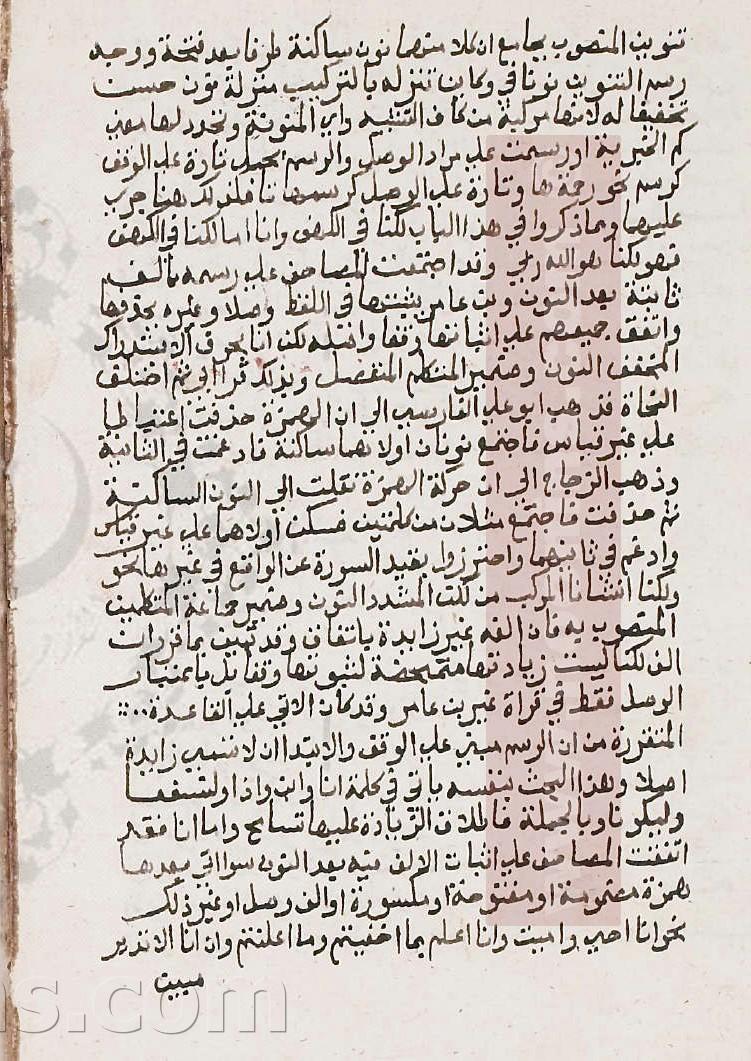 تنوين المنصوب بجامع ان كلا منهما نون ساكنة طرفا بعد فتحة ووجه
رسم التنوين نونا في وكاين تنزله بالتركيب منزلة نون حسنت
تخفيفا له لانها مركبة من كاف التشبيه واي المنونة وتجدد لها معنى
كم الخبرية او رسمت على مراد الوصل والرسم يحمل تارة على الوقف
كرسم نحو رحمة ها وتارة على الوصل كرسمها تا فلذلك هنا جرى
عليهما ومما ذكروا في هذا الباب لكنا في الكهف وانا اما لكنا في الكهف
فهو لكنا هو الله ربي وقد اجتمعت المصاحف على رسمه بالف
ثابتة بعد النون وبن عامر يثبتها في اللفظ وصلا وغيره يحذفها
واتفق جميعهم على اثباتها وقفا واصله لكن انا بحرف الاستدراك
المخفف النون وضمير المتكلم المنفصل وبذلك قرا ابي ثم اختلف
النحاة فذهب ابو علي الفارسي الى ان الهمزة حذفت اعتباطا
على غير قياس فاجتمع نونان اولاهما ساكنة فادغمت في الثانية
وذهب الزجاج الى ان حركة الهمزة نقلت الى النون الساكنة
ثم حذفت فاجتمع مثلان من كلمتين فسكن اولاهما على غير قياس
وادغم في ثانيهما واحترزوا بقيد السورة عن الواقع في غيرها نحو
ولكنا انشانا المركب من لكن المشدد النون وضمير جماعة المتكلمين
المنصوب به فان الفه غير زايدة باتفاق وقد تبين بما قرران
الف لكنا ليست زيادتها متمحضة لثبوتها وقفا بل باعتبار
الوصل فقط في قراة غير بن عامر وقد كان الاتي على القاعدة
المتقررة من ان الرسم مبني على الوقف والابتدا ان لا تسمى زايدة
اصلا وهذا البحث بنفسه ياتي في كلمة انا وانت واذا ولنسفعا
وليكونا وبالجملة فاطلاق الزيادة عليها تسامح واما انا فقد
اتفقت المصاحف على اثبات الالف فيه بعد النون سوا اتى بعدها
همزة مضمومة او مفتوحة او مكسورة او الف وصل او غير ذلك
نحو انا احيي واميت وانا اعلم بما اخفيتم وما اعلنتم وان انا الا نذير
مبين